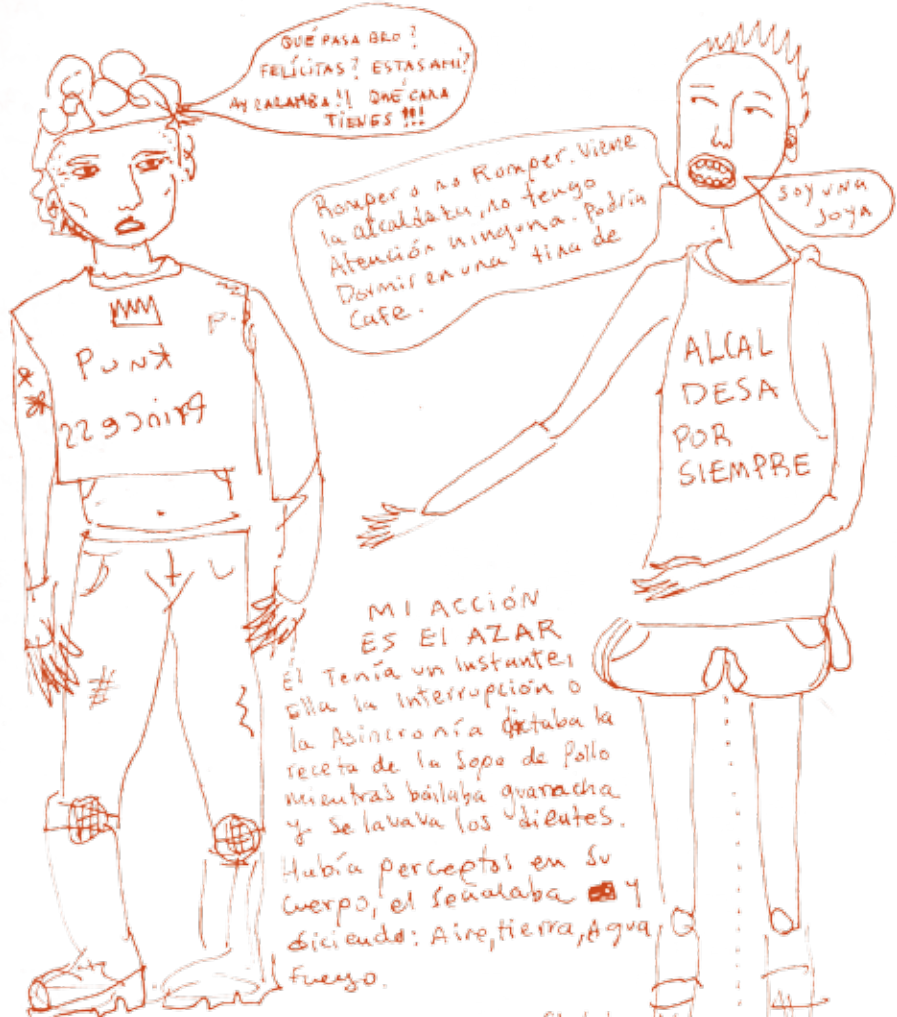 QUÉ PASA BRO?
FELÍCITAS? ESTAS AHI?
AY CARAMBA!! QUÉ CARA
TIENES !!!
Romper o no Romper. Viene
la alcaldesa, no tengo
Atención ninguna. Podría
Dormir en una tina de
Cafe.
SOY UNA
JOYA
P.
PUNK
PrinCeSS
ALCAL
DESA
POR
SIEMPRE
#
MI ACCIÓN
ES El AZAR
él Tenía un instante,
Ella la interrupción o
la Asincronía dictaba la
receta de la Sopa de Pollo
mientras bailaba guaracha
y se lavava los dientes.
Había perceptos en su
cuerpo, el señalaba y
diciendo: Aire, tierra, Agua,
Fuego.